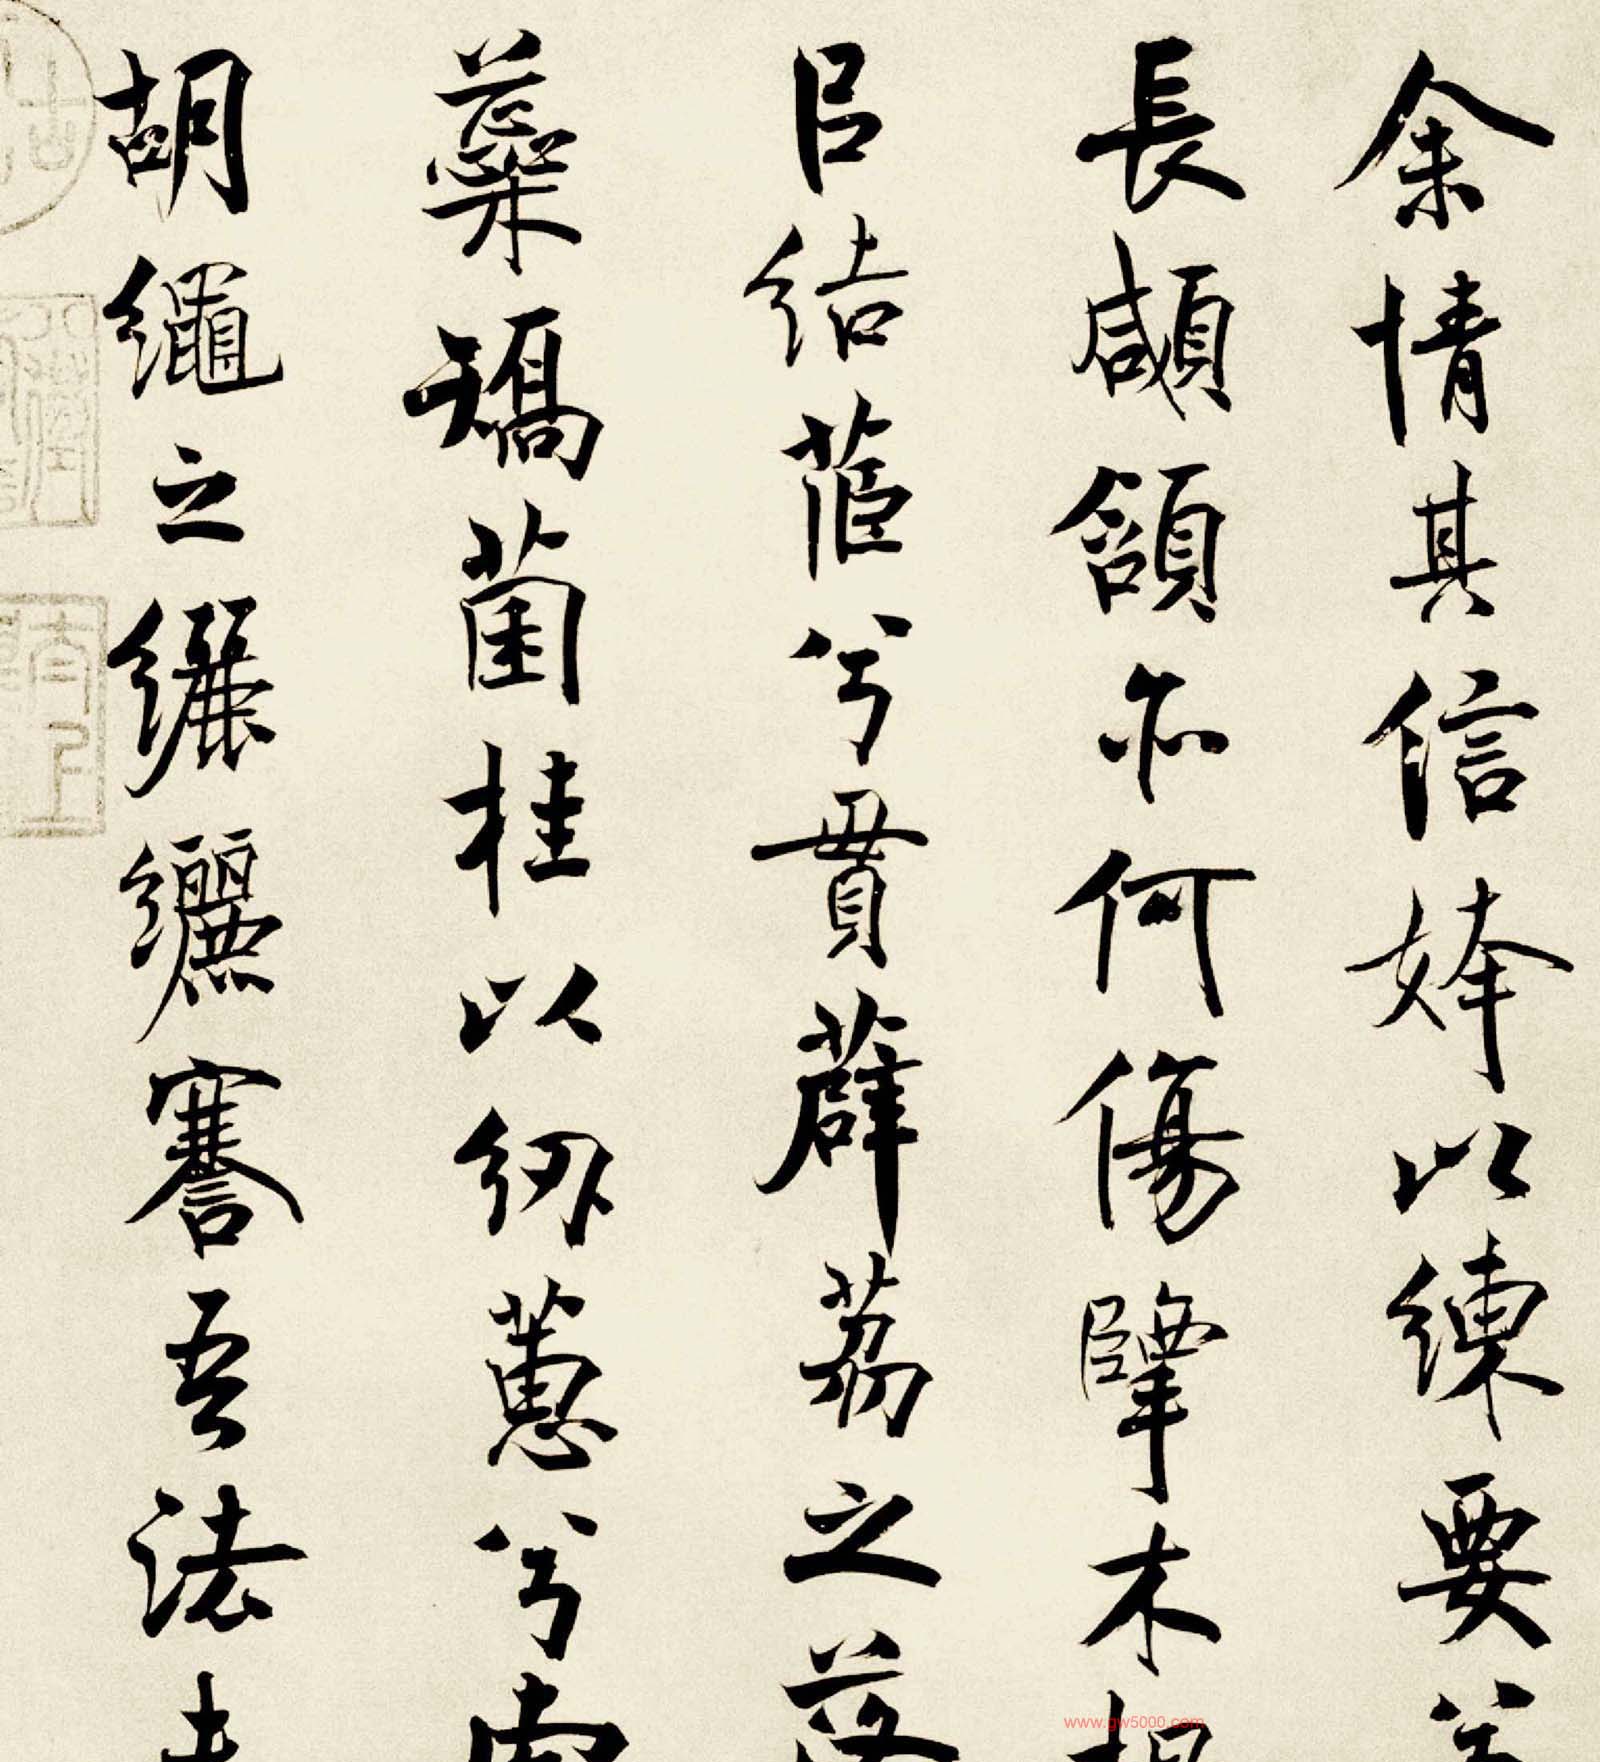 余情其信姱以練要兮
長顑頷亦何傷擥木根
㠯結茞兮貫薜荔之落
蘂矯菌桂以紉蕙兮索
胡繩之纚纚謇吾法夫
www.gw5000.com